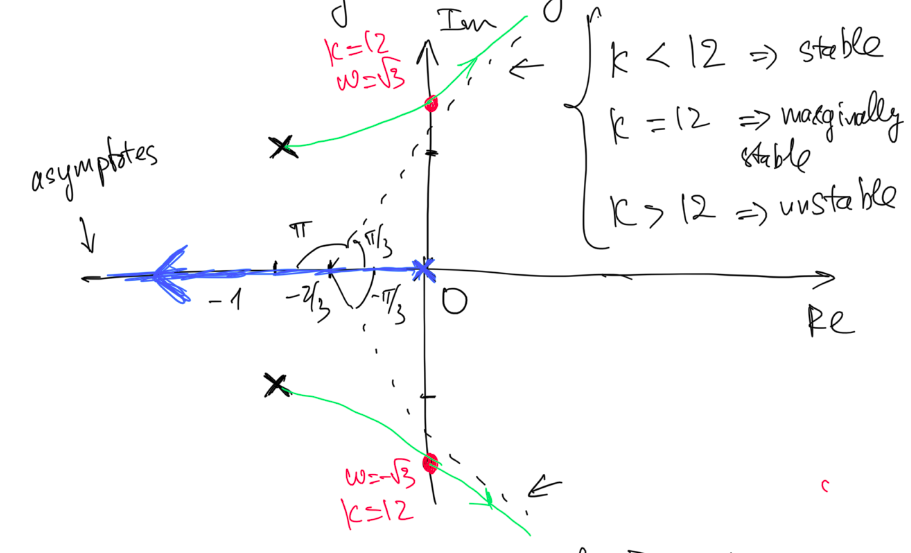 Im
K=12
ω=√3
K < 12 => stable
K = 12 => marginally
stable
K > 12 => unstable
asymptotes
π
π/3
-1
-2/3
-π/3
0
Re
ω=-√3
K=12